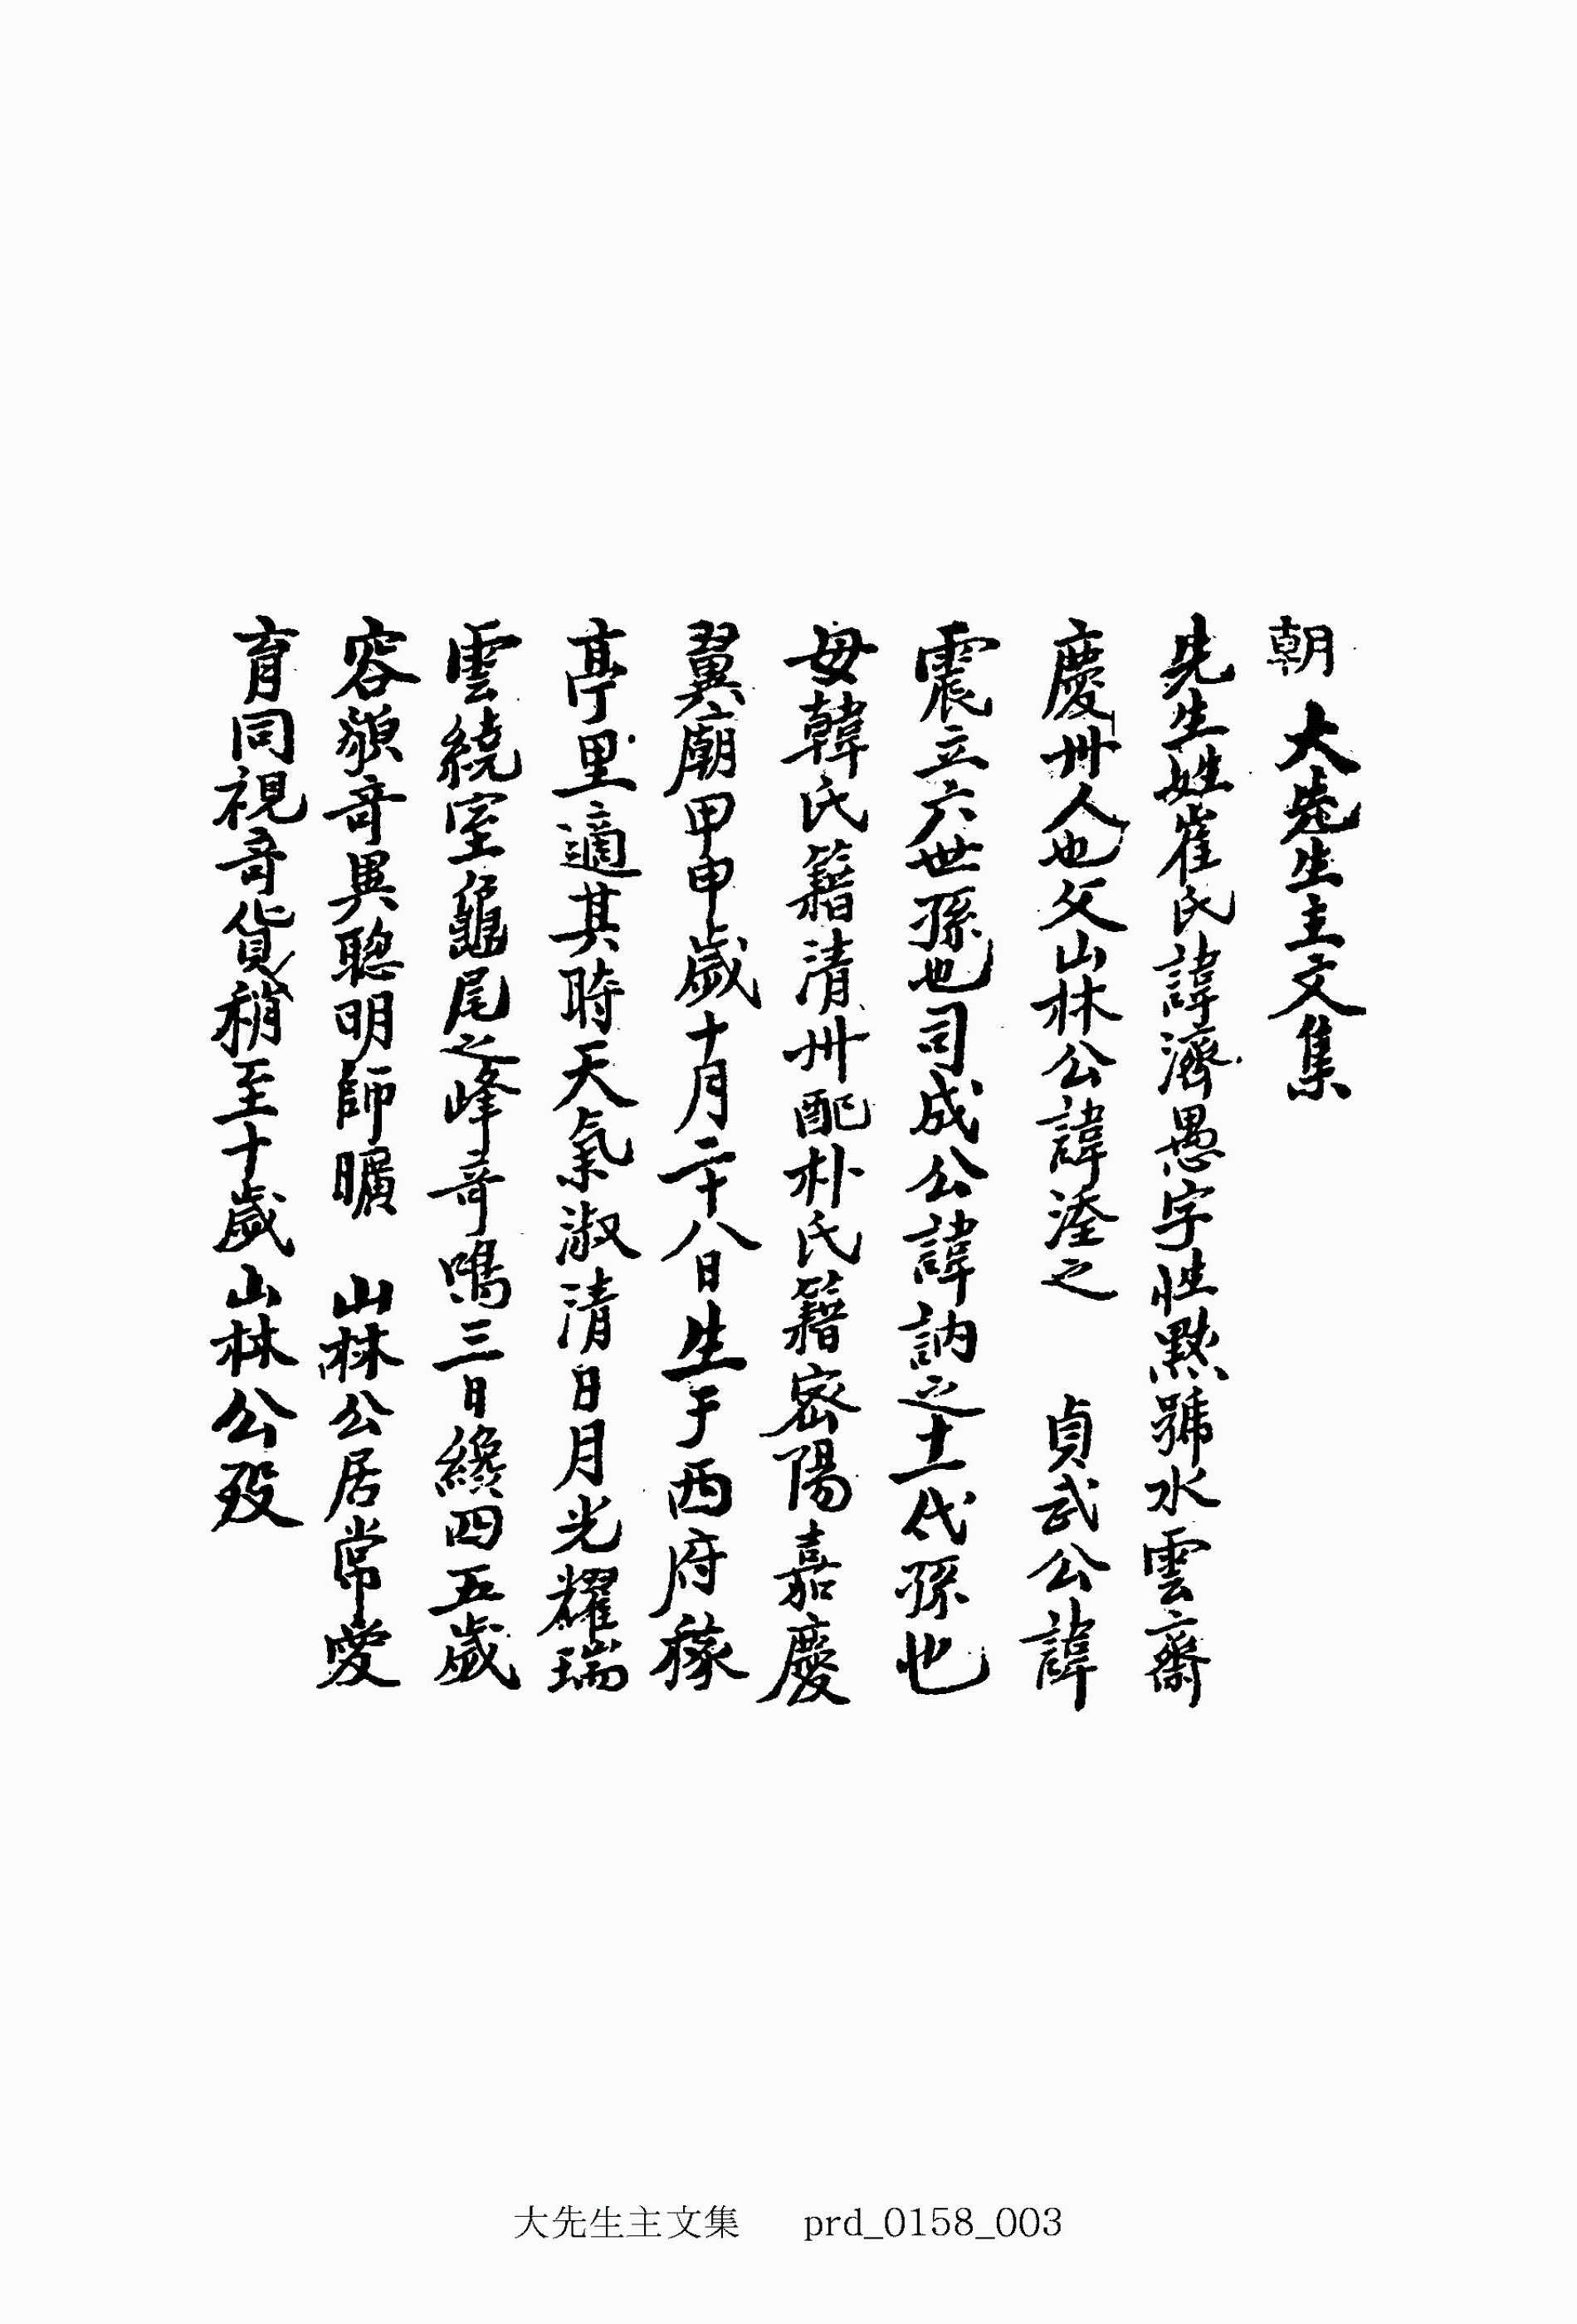 朝 大先生主文集
先生姓崔氏諱濟愚字性黙號水雲齋
慶州人也父山林公諱𣴠之 貞武公諱
震立六世孫也司成公諱訥之十一代孫也
母韓氏籍清州配朴氏籍密陽嘉慶
翼廟甲申歲十月二十八日生于西府稼
亭里適其時天氣淑清日月光耀瑞
雲繞室龜尾之峰奇鳴三日纔四五歲
容貌奇異聰明師曠 山林公居常愛
育同視奇貨稍至十歲山林公歿
大先生主文集 prd_0158_003